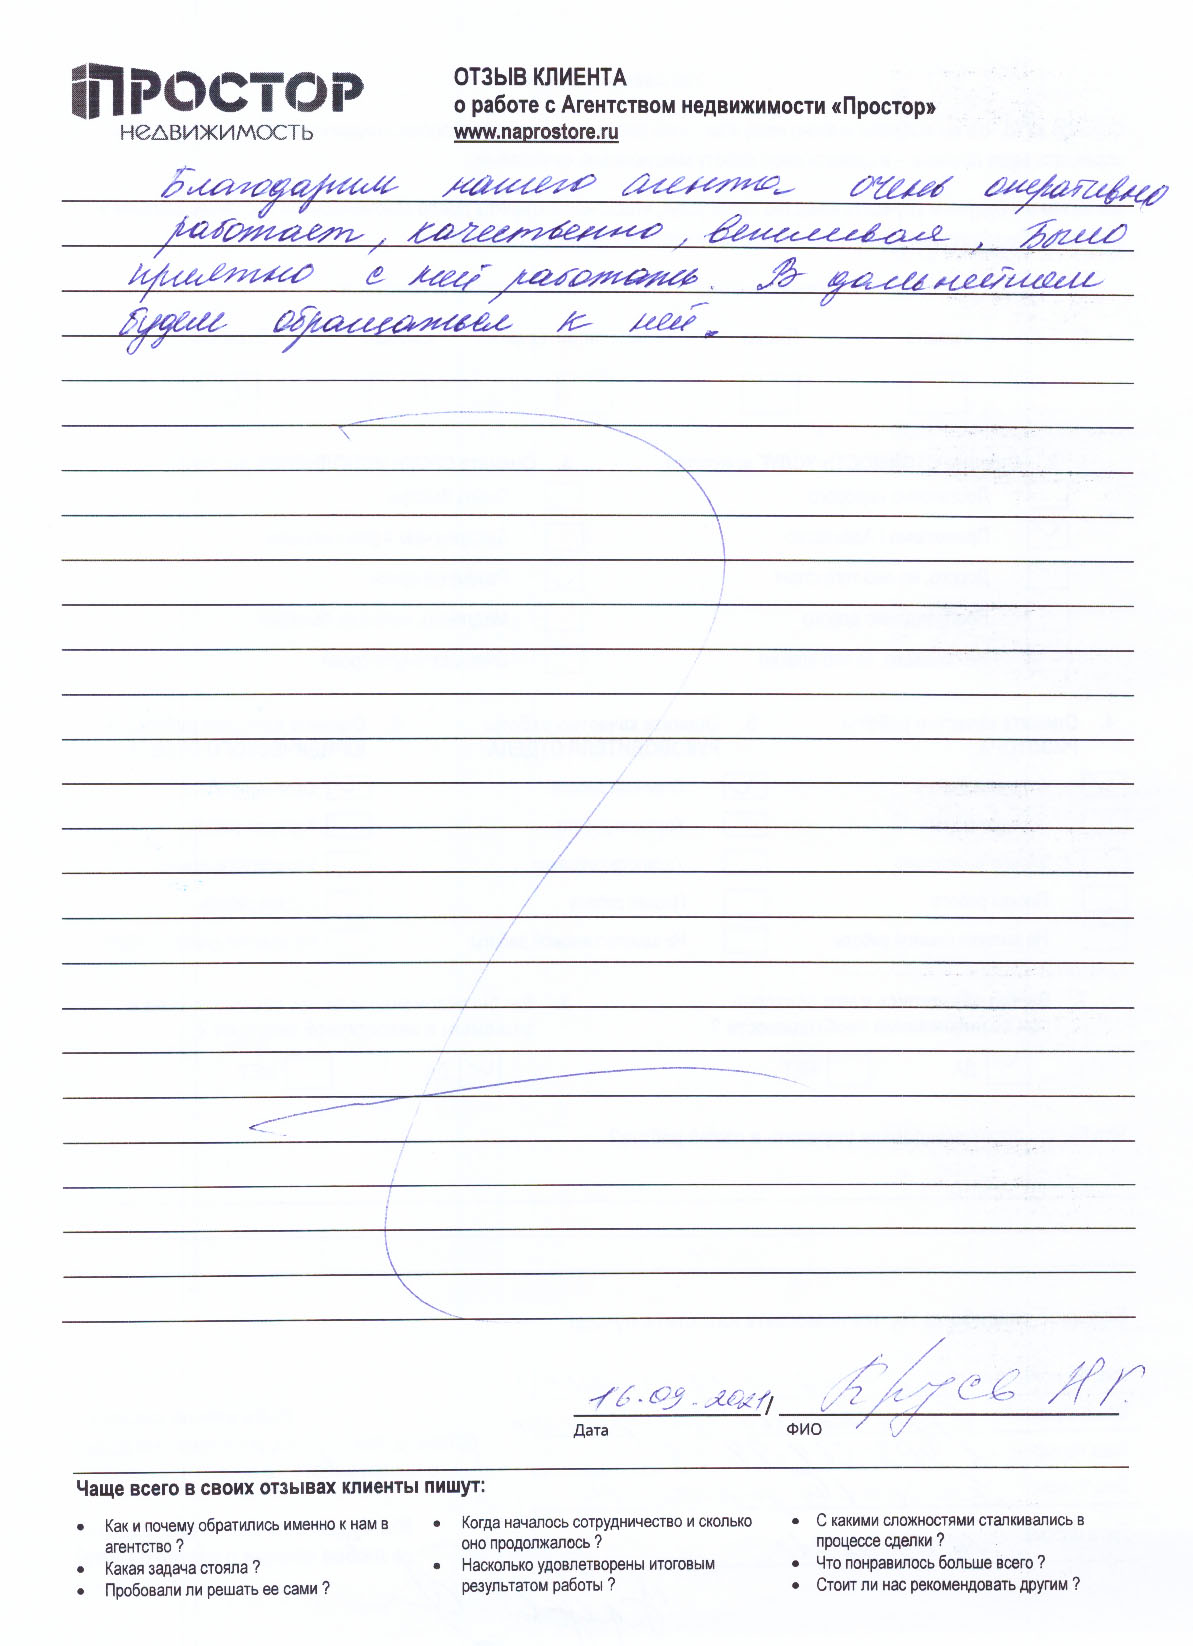 ПРОСТОР
НЕДВИЖИМОСТЬ
ОТЗЫВ КЛИЕНТА
о работе с Агентством недвижимости «Простор»
www.naprostore.ru
Благодарим нашего агента очень оперативно
работает, качественно, вежливая, было
приятно с ней работать. В дальнейшем
будем обращаться к ней.
16.09.2021 /
Дата ФИО
Чаще всего в своих отзывах клиенты пишут:
• Как и почему обратились именно к нам в
агентство ?
• Какая задача стояла ?
• Пробовали ли решать ее сами ?
• Когда началось сотрудничество и сколько
оно продолжалось ?
• Насколько удовлетворены итоговым
результатом работы ?
• С какими сложностями сталкивались в
процессе сделки ?
• Что понравилось больше всего ?
• Стоит ли нас рекомендовать другим ?